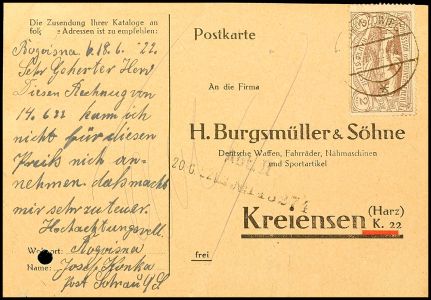 Die Zusendung Ihrer Kataloge an
folg e Adressen ist zu empfehlen:
Rogoisna 6.18.6. 22.
Sehr Geherter Herr
Diesen Rechnung von
14.6 22 kann ich
nicht für diesen
Preiß nich an-
nehmen daß macht
mir sehr zu teuer.
Hochachtungsvoll.
Wohnort: Rogoisna
Name: Josef Konka
Post Sohrau O/S
Postkarte
An die Firma
H. Burgsmüller & Söhne
Deutsche Waffen, Fahrräder, Nähmaschinen
und Sportartikel
Kreiensen (Harz)
K. 22
frei